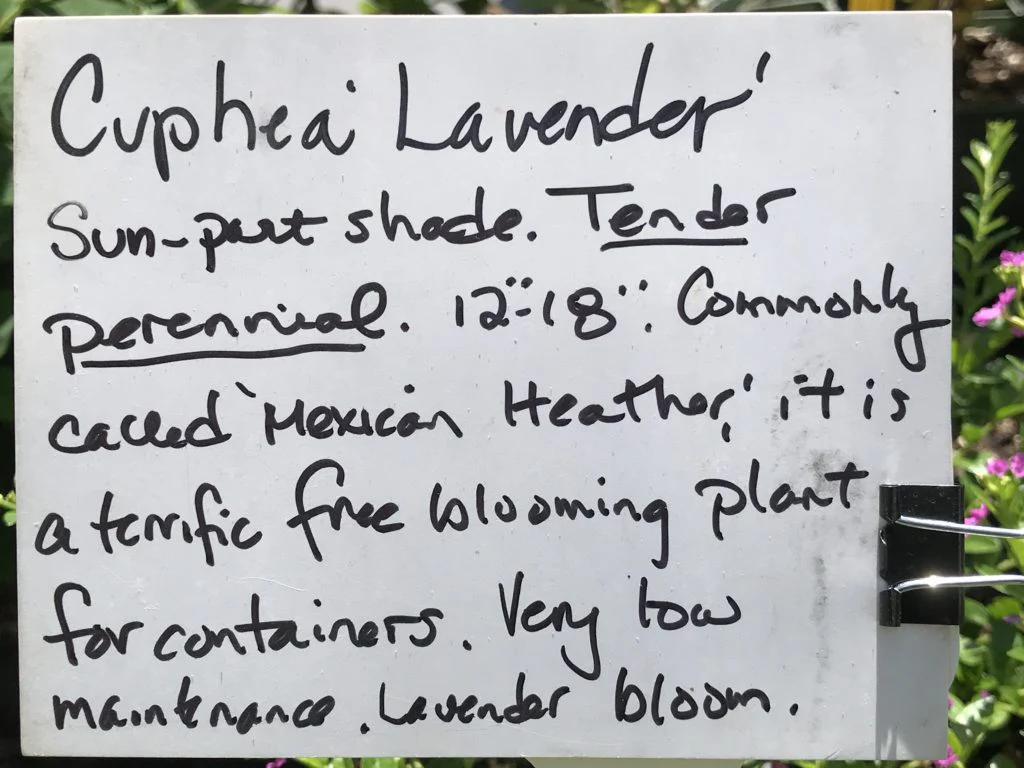 Cuphea 'Lavender'
Sun-part shade. Tender
perennial. 12"-18". Commonly
called 'Mexican Heather,' it is
a terrific free blooming plant
for containers. Very low
maintenance. Lavender bloom.